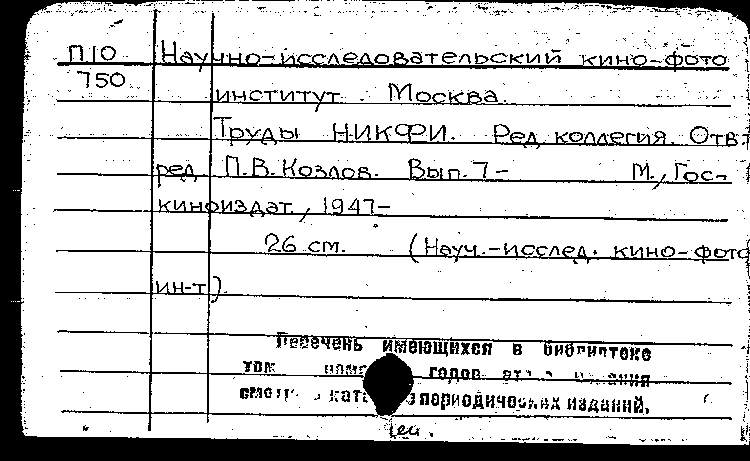 П10 Научно-исследовательский кино-фото
750 институт. Москва.
Труды НИКФИ. Ред. коллегия. Отв.
ред. П.В. Козлов. Вып. 7- М., Гос-
киноиздат, 1947-
26 см. (Науч.-исслед. кино-фото
ин-т).
Перечень имеющихся в библиотеке
годов
периодических изданий.